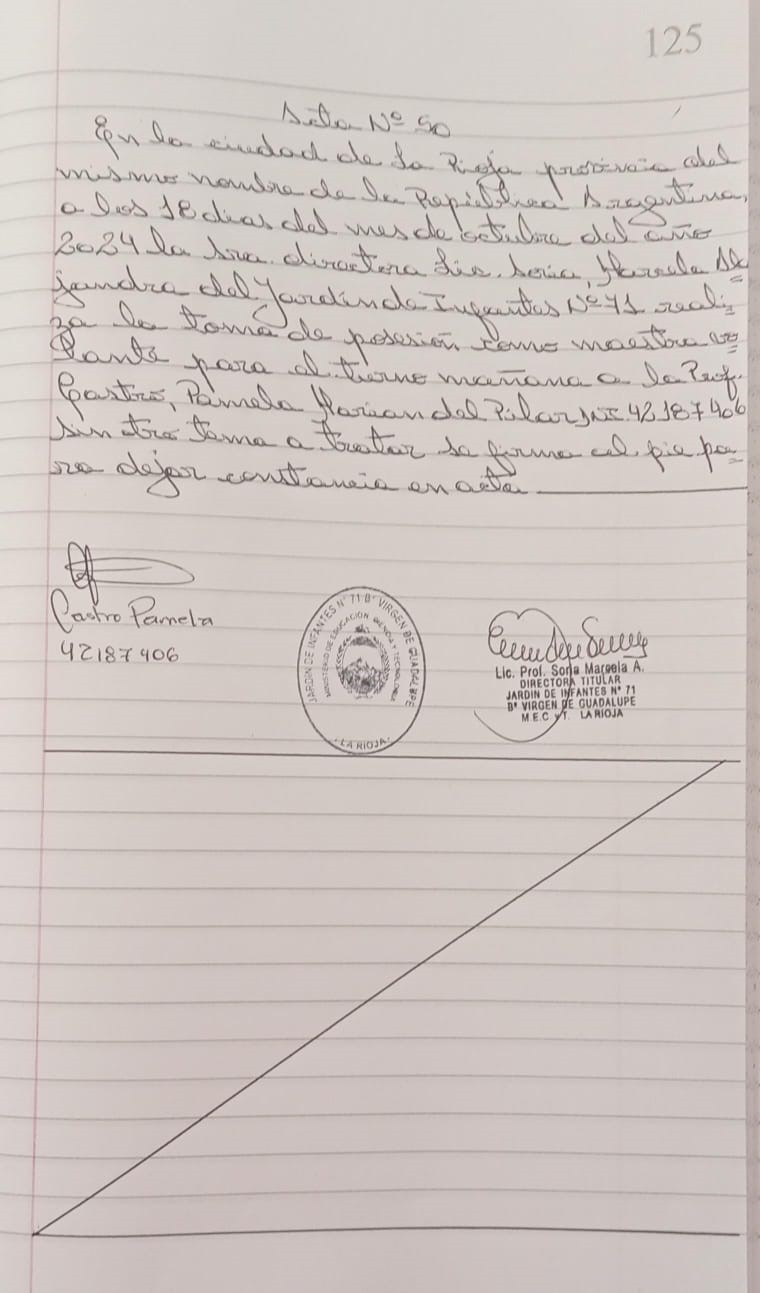 125
Acta Nº 50
En la ciudad de La Rioja provincia del
mismo nombre de la República Argentina,
a los 18 dias del mes de octubre del año
2024 la Sra. directora Lic. Soria, Marcela Ale
jandra del Jardin de Infantes Nº 71 reali=
za la toma de posesión como maestra vo=
lante para el turno mañana a la Prof.
Castro, Pamela Marian del Pilar DNI. 42187406
sin otro tema a tratar se firma al pie pa=
ra dejar constancia en acta
Castro Pamela
42187406
JARDIN DE INFANTES N° 71 Bº VIRGEN DE GUADALUPE
MINISTERIO DE EDUCACIÓN CIENCIA Y TECNOLOGÍA
- LA RIOJA -
Lic. Prof. Soria Marcela A.
DIRECTORA TITULAR
JARDIN DE INFANTES N° 71
Bº VIRGEN DE GUADALUPE
M.E.C. y T. LA RIOJA